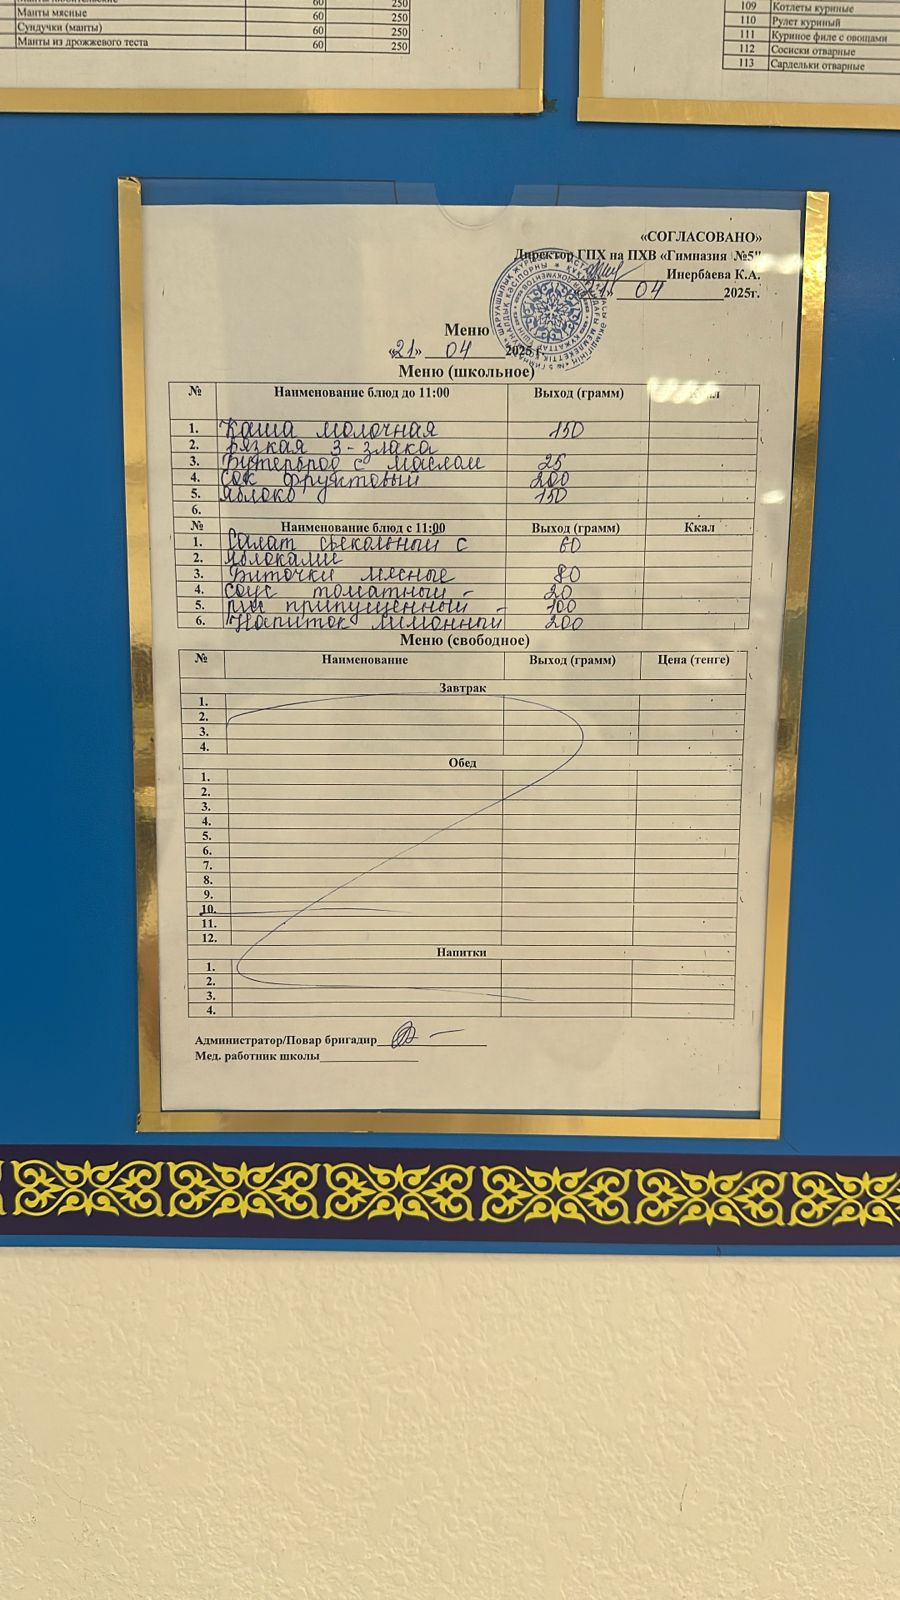 Манты мясные 60 250
Сундучки (манты) 60 250
Манты из дрожжевого теста 60 250
109 Котлеты куриные
110 Рулет куриный
111 Куриное филе с овощами
112 Сосиски отварные
113 Сардельки отварные
«СОГЛАСОВАНО»
Директор ГПХ на ПХВ «Гимназия №5"
Инербаева К.А.
«21» 04 2025г.
Меню
«21» 04 2025 г.
Меню (школьное)
№ Наименование блюд до 11:00 Выход (грамм)
1. Каша молочная 150
2. вязкая 3-злака
3. Бутерброд с маслом 25
4. Сок фруктовый 200
5. Яблоко 150
6.
№ Наименование блюд с 11:00 Выход (грамм) Ккал
1. Салат свекольный с 60
2. яблоками
3. Биточки мясные 80
4. соус томатный - 20
5. рис припущенный - 100
6. Напиток лимонный 200
Меню (свободное)
№ Наименование Выход (грамм) Цена (тенге)
Завтрак
1.
2.
3.
4.
Обед
1.
2.
3.
4.
5.
6.
7.
8.
9.
10.
11.
12.
Напитки
1.
2.
3.
4.
Администратор/Повар бригадир
Мед. работник школы